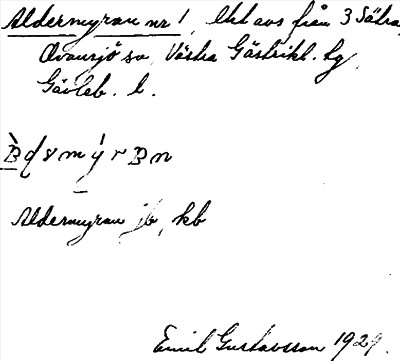 Aldermyran nr 1, lht avs från 3 Sätra,
Ovansjö sn, Västra Gästrikl. tg
Gävleb. l.
Aldermyran jb, kb
Emil Gustavsson 1929.